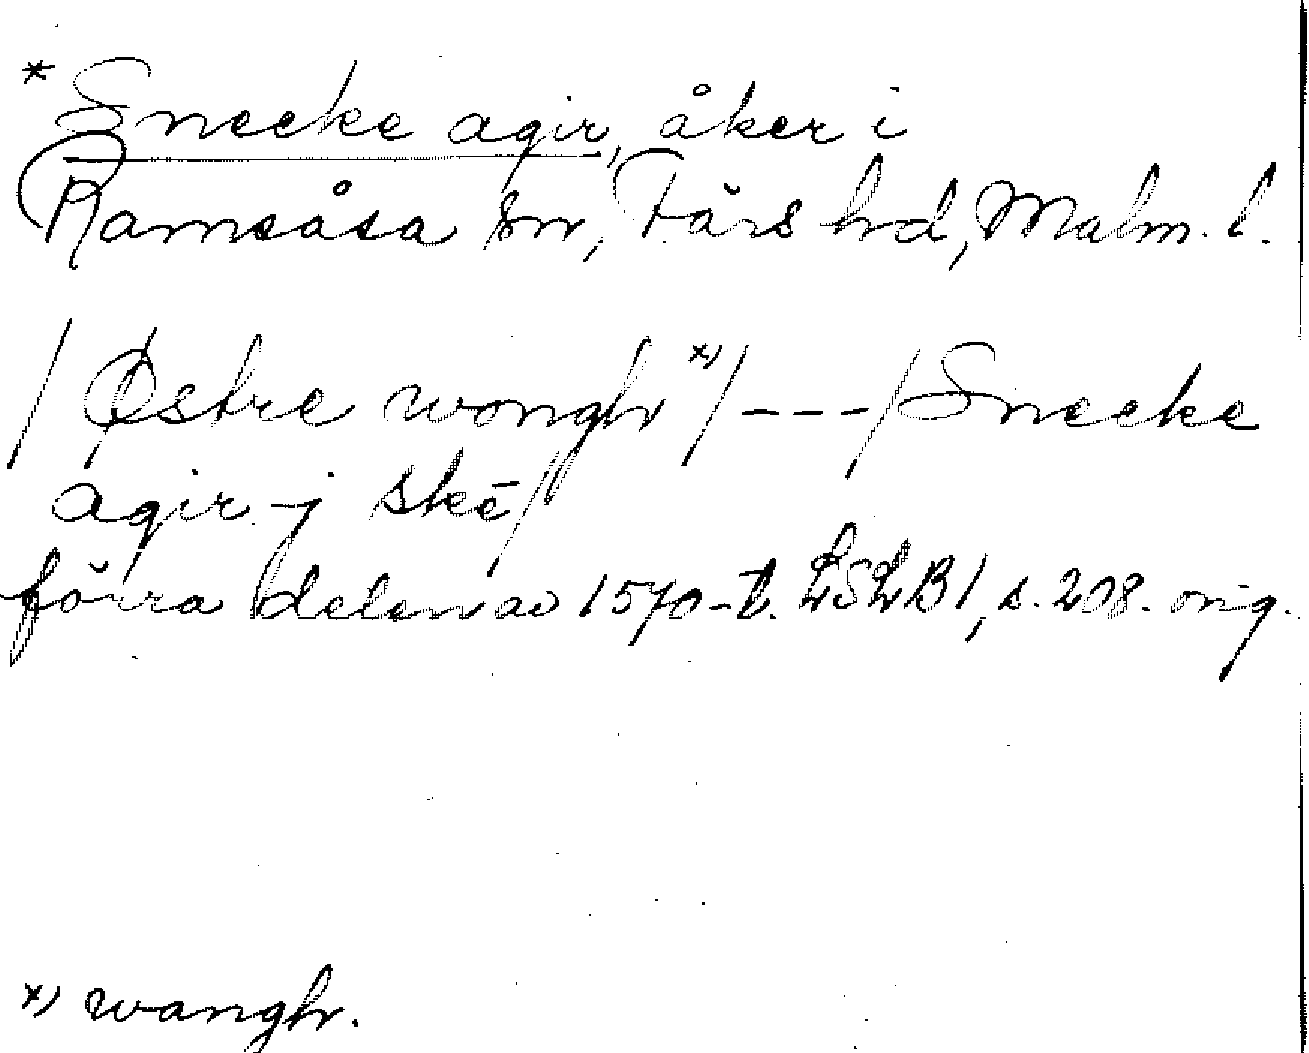 * Snecke agir, åker i
Ramsåsa sn, Färs hd, Malm. l.
/Østre wongh x)/---/Snecke
agir j ske/
förra delen av 1570-t. LSLB1, s. 208. orig.
x) wangh.